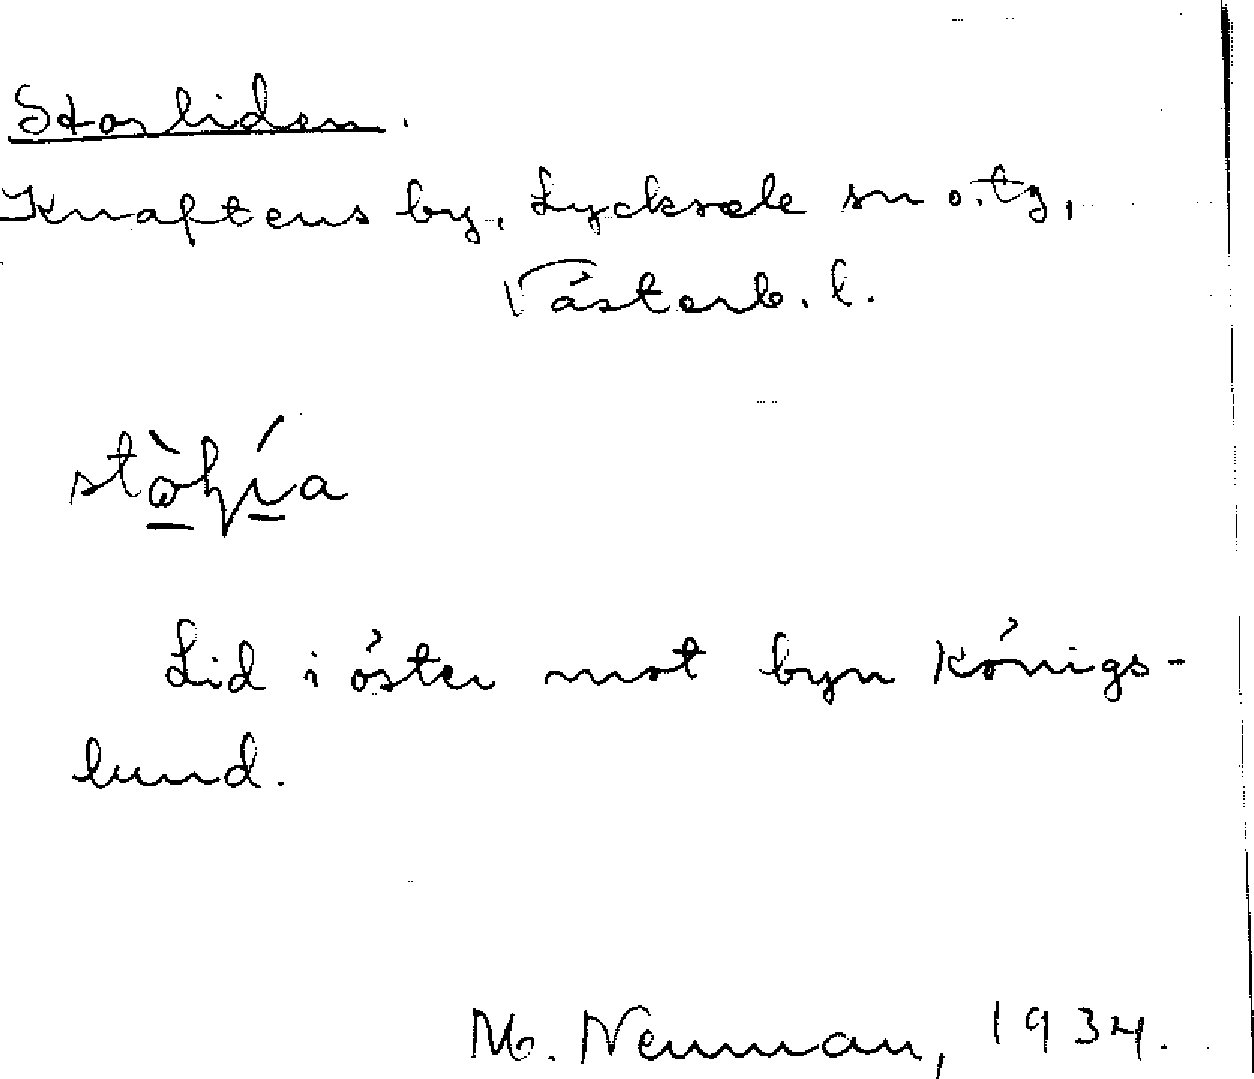 Storliden.
Knaftens by, Lycksele sn o. tg,
Västerb. l.
Lid i öster mot byn Königs-
lund.
M. Neuman, 1934.